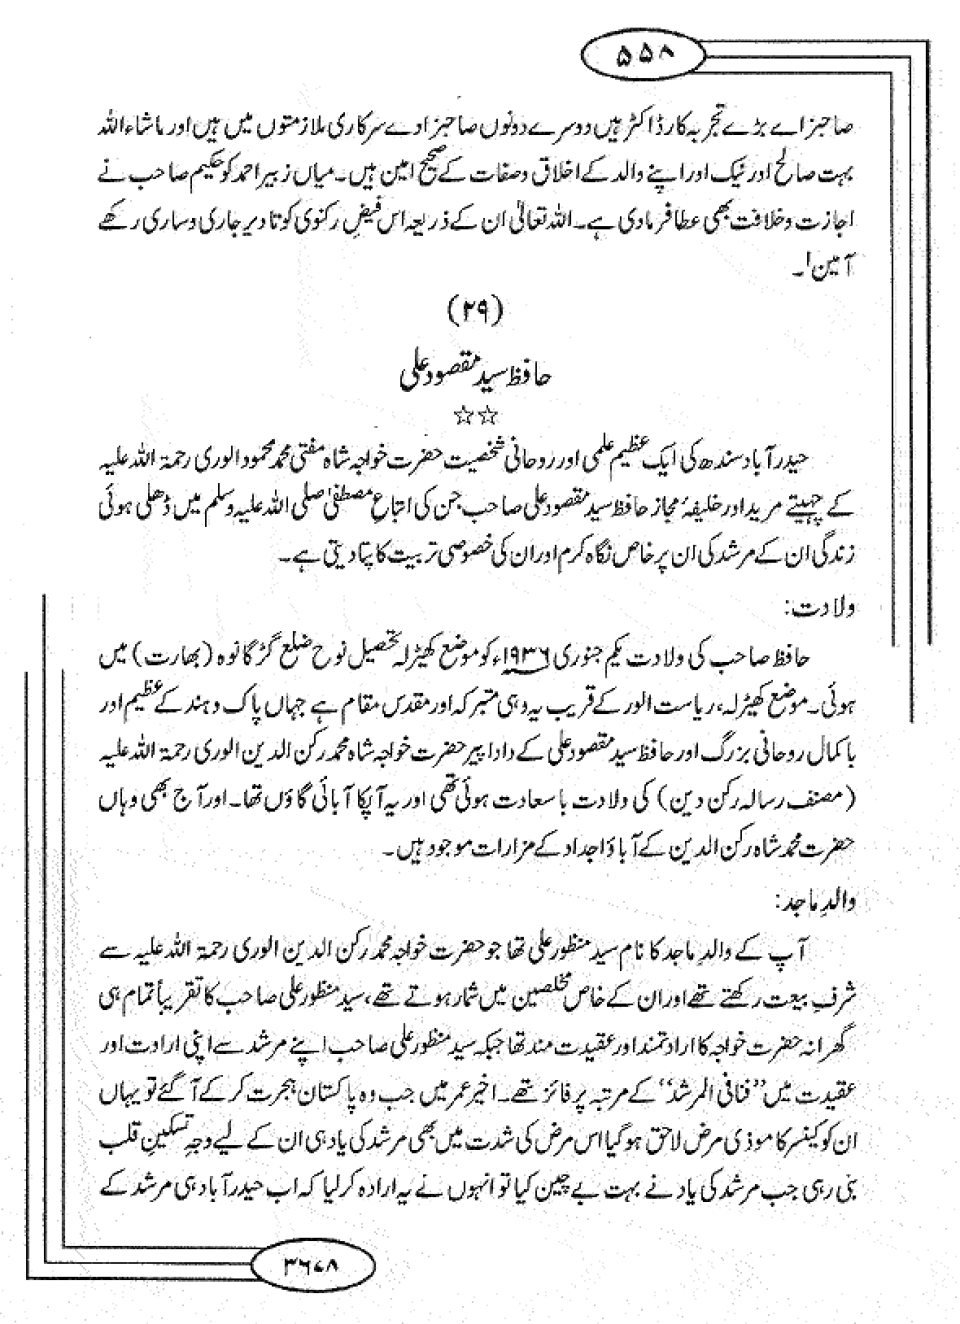 ۵۵۸
صاحبزاے بڑے تجربہ کار ڈاکٹر ہیں دوسرے دونوں صاحبزادے سرکاری ملازمتوں میں ہیں اور ماشاءاللہ
بہت صالح اور نیک اور اپنے والد کے اخلاق وصفات کے صحیح امین ہیں۔ میاں زبیر احمد کو حکیم صاحب نے
اجازت وخلافت بھی عطا فرمادی ہے۔ اللہ تعالیٰ ان کے ذریعہ اس فیضِ رکنوی کو تادیر جاری وساری رکھے
آمین!۔
(۲۹)
حافظ سید مقصود علی
☆☆
حیدرآباد سندھ کی ایک عظیم علمی اور روحانی شخصیت حضرت خواجہ شاہ مفتی محمد محمود الوری رحمۃ اللہ علیہ
کے چہیتے مرید اور خلیفۂ مجاز حافظ سید مقصود علی صاحب جن کی اتباعِ مصطفیٰ صلی اللہ علیہ وسلم میں ڈھلی ہوئی
زندگی ان کے مرشد کی ان پر خاص نگاہ کرم اور ان کی خصوصی تربیت کا پتا دیتی ہے۔
ولادت:
حافظ صاحب کی ولادت یکم جنوری ۱۹۳۶ء کو موضع کھیڑلہ تحصیل نوح ضلع گڑگانوہ (بھارت) میں
ہوئی۔ موضع کھیڑلہ، ریاست الور کے قریب یہ وہی متبرکہ اور مقدس مقام ہے جہاں پاک وہند کے عظیم اور
باکمال روحانی بزرگ اور حافظ سید مقصود علی کے دادا پیر حضرت خواجہ شاہ محمد رکن الدین الوری رحمۃ اللہ علیہ
(مصنف رسالہ رکن دین) کی ولادت باسعادت ہوئی تھی اور یہ آپکا آبائی گاؤں تھا۔ اور آج بھی وہاں
حضرت محمد شاہ رکن الدین کے آباؤ اجداد کے مزارات موجود ہیں۔
والدِ ماجد:
آپ کے والدِ ماجد کا نام سید منظور علی تھا جو حضرت خواجہ محمد رکن الدین الوری رحمۃ اللہ علیہ سے
شرفِ بیعت رکھتے تھے اور ان کے خاص مخلصین میں شمار ہوتے تھے، سید منظور علی صاحب کا تقریباً تمام ہی
گھرانہ حضرت خواجہ کا ارادتمند اور عقیدت مند تھا جبکہ سید منظور علی صاحب اپنے مرشد سے اپنی ارادت اور
عقیدت میں ”فنافی المرشد“ کے مرتبہ پر فائز تھے۔ اخیر عمر میں جب وہ پاکستان ہجرت کرکے آگئے تو یہاں
ان کو کینسر کا موذی مرض لاحق ہوگیا اس مرض کی شدت میں بھی مرشد کی یاد ہی ان کے لیے وجہِ تسکینِ قلب
بنی رہی جب مرشد کی یاد نے بہت بے چین کیا تو انہوں نے یہ ارادہ کرلیا کہ اب حیدرآباد ہی مرشد کے
۳۶۷۸